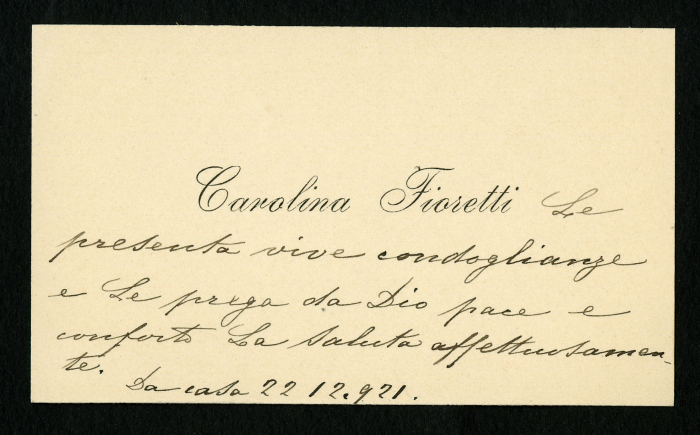 Carolina Fioretti Le
presenta vive condoglianze
e Le prega da Dio pace e
conforto La saluta affettuosamen-
te.
Da casa 22 12.921.